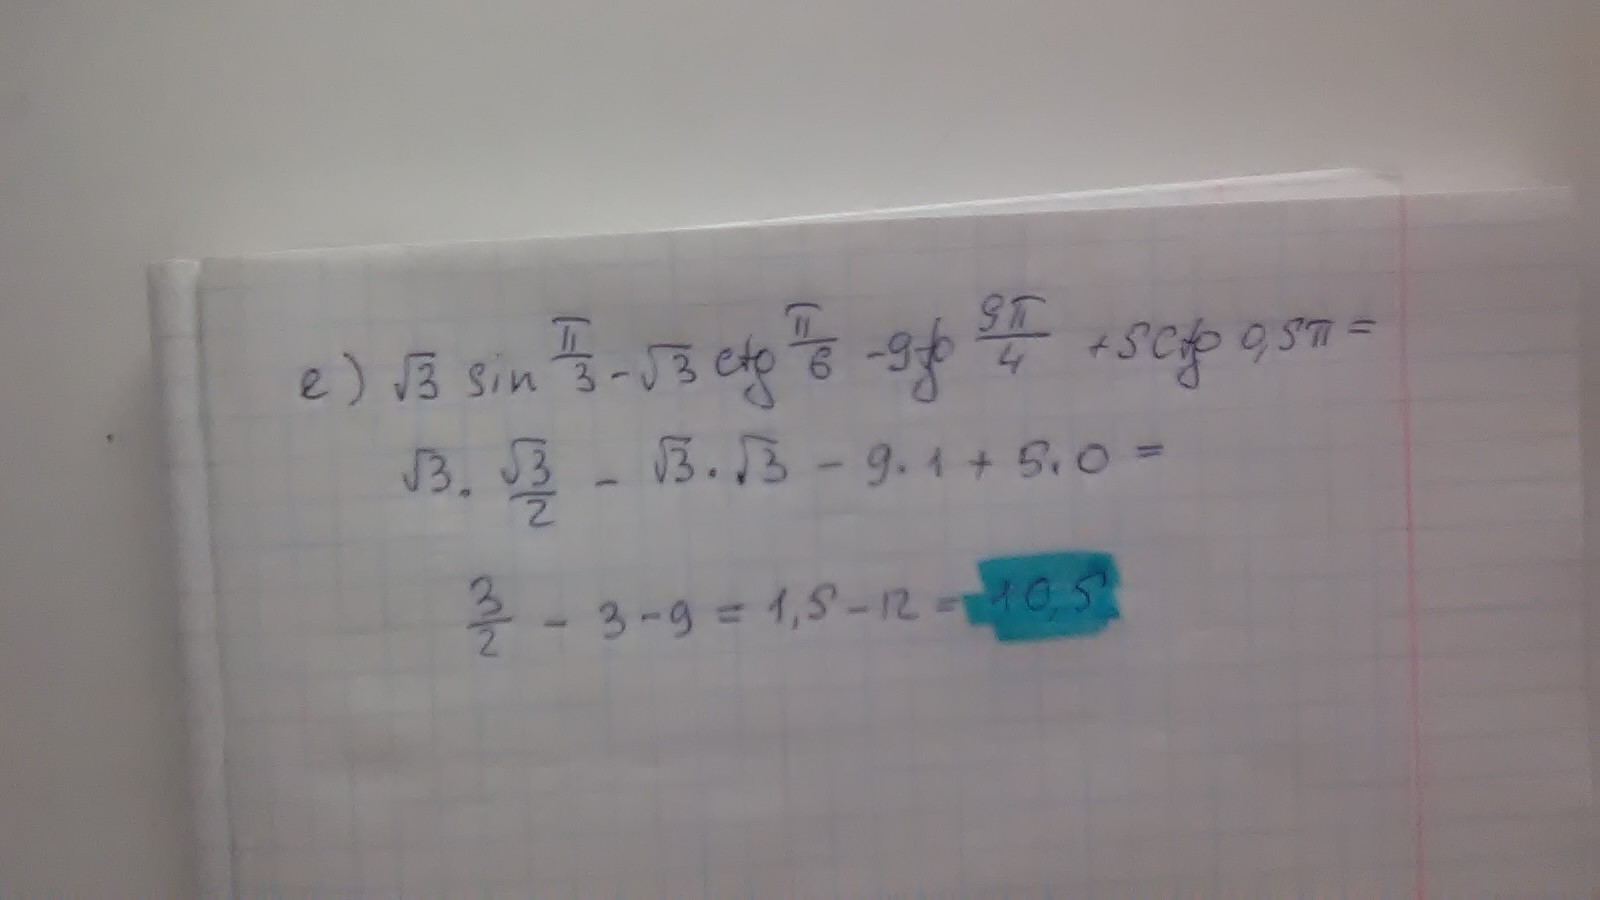 е) √3 sin π/3 - √3 ctg π/6 - 9tg 9π/4 + 5ctg 0,5π =
√3 · √3/2 - √3 · √3 - 9 · 1 + 5 · 0 =
3/2 - 3 - 9 = 1,5 - 12 = -10,5